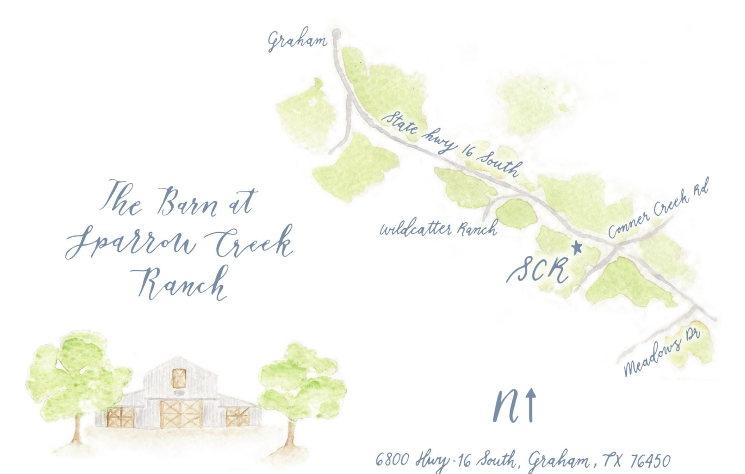 Graham
State hwy 16 South
The Barn at
Sparrow Creek
Ranch
Wildcatter Ranch
Conner Creek Rd
SCR
Meadows Dr
N
6800 Hwy-16 South, Graham, TX 76450